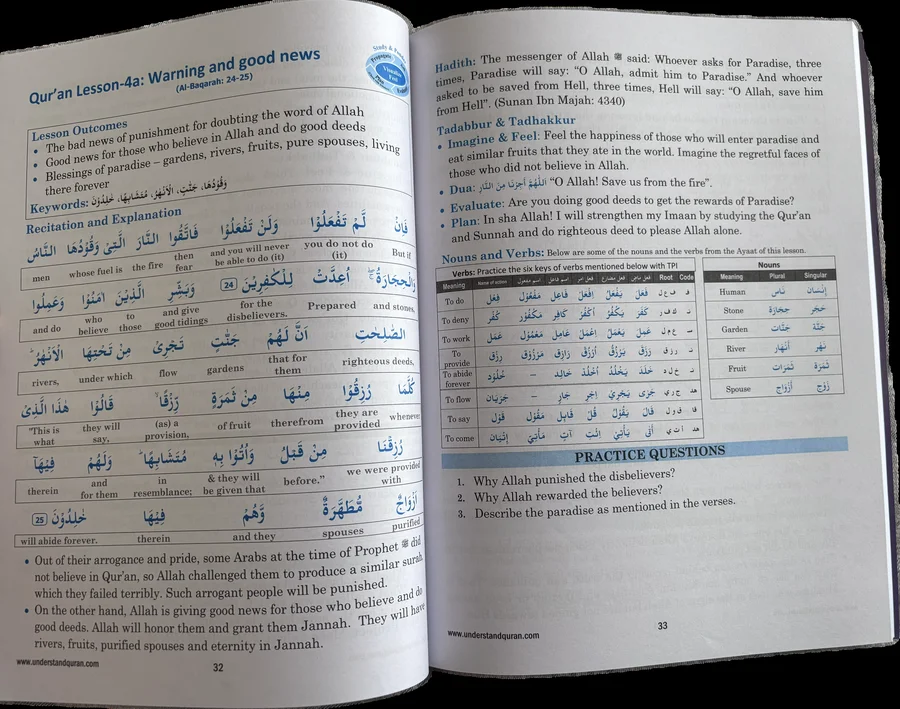 Qur'an Lesson-4a: Warning and good news
(Al-Baqarah: 24-25)
Lesson Outcomes
• The bad news of punishment for doubting the word of Allah
• Good news for those who believe in Allah and do good deeds
• Blessings of paradise – gardens, rivers, fruits, pure spouses, living
there forever
Keywords: وَقُوْدُهَا، جَنّٰتٍ، الْاَنْهٰرُ، مُتَشَابِهًا، خٰلِدُوْنَ
Recitation and Explanation
فَاِنْ لَّمْ تَفْعَلُوْا وَلَنْ تَفْعَلُوْا فَاتَّقُوا النَّارَ الَّتِىْ وَقُوْدُهَا النَّاسُ
But if you do not do (it) and you will never be able to do (it) then fear the fire whose fuel is men
وَالْحِجَارَةُ ۖ اُعِدَّتْ لِلْكٰفِرِيْنَ 24 وَبَشِّرِ الَّذِيْنَ اٰمَنُوْا وَعَمِلُوا
and stones, Prepared for the disbelievers. and give good tidings to those who believe and do
الصّٰلِحٰتِ اَنَّ لَهُمْ جَنّٰتٍ تَجْرِىْ مِنْ تَحْتِهَا الْاَنْهٰرُ
righteous deeds, that for them gardens flow under which rivers,
كُلَّمَا رُزِقُوْا مِنْهَا مِنْ ثَمَرَةٍ رِّزْقًا قَالُوْا هٰذَا الَّذِىْ
whenever they are provided therefrom of fruit (as) a provision, they will say, "This is what
رُزِقْنَا مِنْ قَبْلُ وَاُتُوْا بِهٖ مُتَشَابِهًا وَلَهُمْ فِيْهَآ
we were provided with before." & they will be given that in resemblance; and for them therein
اَزْوَاجٌ مُّطَهَّرَةٌ وَّهُمْ فِيْهَا خٰلِدُوْنَ 25
purified spouses and they therein will abide forever.
• Out of their arrogance and pride, some Arabs at the time of Prophet ﷺ did
not believe in Qur'an, so Allah challenged them to produce a similar surah,
which they failed terribly. Such arrogant people will be punished.
• On the other hand, Allah is giving good news for those who believe and do
good deeds. Allah will honor them and grant them Jannah. They will have
rivers, fruits, purified spouses and eternity in Jannah.
www.understandquran.com
32
Hadith: The messenger of Allah ﷺ said: Whoever asks for Paradise, three
times, Paradise will say: "O Allah, admit him to Paradise." And whoever
asked to be saved from Hell, three times, Hell will say: "O Allah, save him
from Hell". (Sunan Ibn Majah: 4340)
Tadabbur & Tadhakkur
• Imagine & Feel: Feel the happiness of those who will enter paradise and
eat similar fruits that they ate in the world. Imagine the regretful faces of
those who did not believe in Allah.
• Dua: اَللّٰهُمَّ اَجِرْنَا مِنَ النَّارِ "O Allah! Save us from the fire".
• Evaluate: Are you doing good deeds to get the rewards of Paradise?
• Plan: In sha Allah! I will strengthen my Imaan by studying the Qur'an
and Sunnah and do righteous deed to please Allah alone.
Nouns and Verbs: Below are some of the nouns and the verbs from the Ayaat of this lesson.
Verbs: Practice the six keys of verbs mentioned below with TPI
Meaning Name of action اسم مفعول اسم فاعل فعل أمر فعل مضارع فعل ماض Root Code
To do فِعْل مَفْعُوْل فَاعِل اِفْعَلْ يَفْعَلُ فَعَلَ ف ع ل ف
To deny كُفْر مَكْفُوْر كَافِر اُكْفُرْ يَكْفُرُ كَفَرَ ك ف ر ن
To work عَمَل مَعْمُوْل عَامِل اِعْمَلْ يَعْمَلُ عَمِلَ ع م ل س
To provide رِزْق مَرْزُوْق رَازِق اُرْزُقْ يَرْزُقُ رَزَقَ ر ز ق ن
To abide forever خُلُوْد – خَالِد اُخْلُدْ يَخْلُدُ خَلَدَ خ ل د ن
To flow جَرَيَان – جَارٍ اِجْرِ يَجْرِيْ جَرٰى ج ر ي هد
To say قَوْل مَقُوْل قَائِل قُلْ يَقُوْلُ قَالَ ق و ل قا
To come اِتْيَان مَأْتِيّ آتٍ اِئْتِ يَأْتِيْ أَتٰى أ ت ي هد
Nouns
Meaning Plural Singular
Human نَاس إِنْسَان
Stone حِجَارَة حَجَر
Garden جَنَّات جَنَّة
River أَنْهَار نَهْر
Fruit ثَمَرَات ثَمَرَة
Spouse أَزْوَاج زَوْج
PRACTICE QUESTIONS
1. Why Allah punished the disbelievers?
2. Why Allah rewarded the believers?
3. Describe the paradise as mentioned in the verses.
www.understandquran.com
33